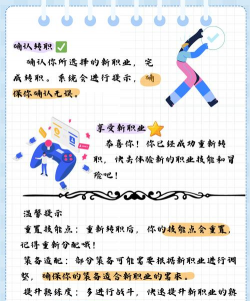 确认转职
确认你所选择的新职业，完
成转职。系统会进行提示，确
保你确认无误。
享受新职业
恭喜你！你已经成功重新转
职，快去体验新的职业技能和冒
险吧！
温馨提示
重置技能点：重新转职后，你的技能点会重置，
记得重新分配哦！
装备适配：部分装备可能需要根据新职业进行调
整，确保你的装备适合新职业的需求。
提升熟练度：多进行战斗，快速提升新职业的熟